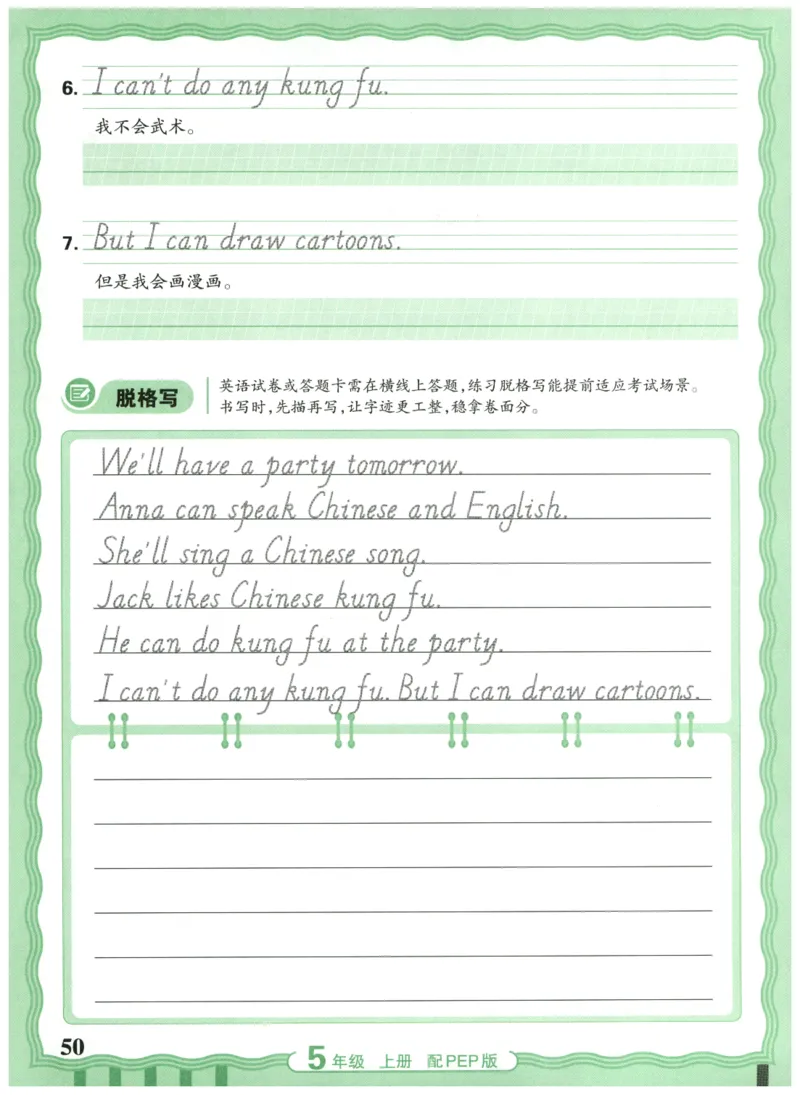 6. I can't do any kung fu.
我不会武术。
7. But I can draw cartoons.
但是我会画漫画。
脱格写
英语试卷或答题卡需在横线上答题,练习脱格写能提前适应考试场景。
书写时,先描再写,让字迹更工整,稳拿卷面分。
We'll have a party tomorrow.
Anna can speak Chinese and English.
She'll sing a Chinese song.
Jack likes Chinese kung fu.
He can do kung fu at the party.
I can't do any kung fu. But I can draw cartoons.
50
5年级 上册 配PEP版